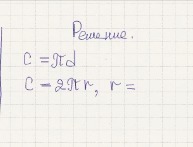 Решение.
C = πd
C = 2πr, r =